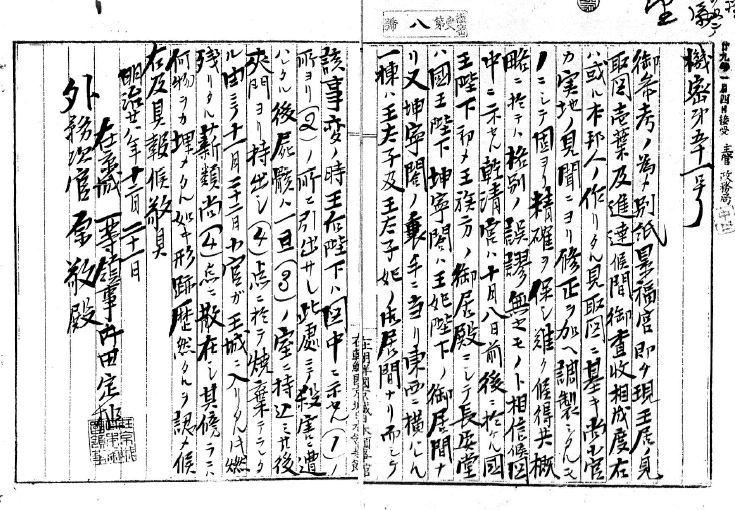 機密第五十一号
御参考ノ為メ別紙景福宮即チ現王居ノ見
取図壱葉及進達候間御査収相成度右
ハ或ル本邦人ノ作リタル見取図ニ基キ当館
カ実地ノ見聞ニヨリ修正ヲ加ヘ調製シタルモ
ノニシテ固ヨリ精確ヲ保シ難ク候得共概
略ニ於テハ格別ノ誤謬無之モノト相信候図
中ニ示セル乾清宮ハ十月八日前後ニ於ケル国
王陛下初メ王族方ノ御居殿ニシテ長安堂
ハ国王陛下坤寧閣ハ王妃陛下ノ御居間ナ
リ又坤寧閣ノ裏手ニ当リ東西ニ横ハル
一棟ハ王太子及王太子妃ノ御居間ナリ而シテ
該事変ノ時王后陛下ハ図中ニ示セル(1)ノ
所ヨリ(2)ノ所ニ引出サレ此処ニテ殺害ニ遭
ハレタル後屍骸ハ一旦(3)ノ室ニ持込ミ其後
夾門ヨリ持出シ(4)点ニ於テ焼棄テラレタ
ル由ニテ十一月二十二日小官ガ王城ヘ入リタル時ハ燃
残リタル薪類尚(4)点ニ散在シ其傍ラニハ
何物ヲカ埋メタル如キ形跡歴然タルヲ認メ候
右及具報候敬具
明治廿八年十二月二十一日
在京城
一等領事内田定槌
外務次官原敬殿
廿九年一月四日接受
主管 政務局
受第八番
在朝鮮国京城日本領事館